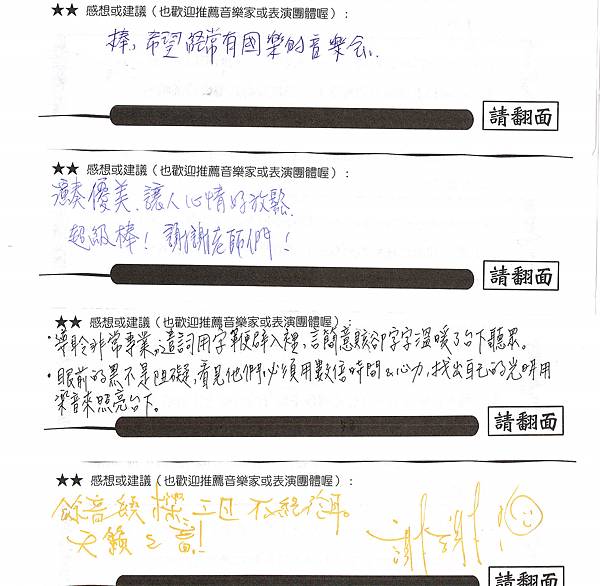 ★★ 感想或建議（也歡迎推薦音樂家或表演團體喔）：
棒，希望經常有國樂的音樂會。
請翻面
★★ 感想或建議（也歡迎推薦音樂家或表演團體喔）：
演奏優美，讓人心情好放鬆
超級棒！謝謝老師們！
請翻面
★★ 感想或建議（也歡迎推薦音樂家或表演團體喔）：
・導聆非常專業，遣詞用字鞭辟入裡，言簡意賅卻字字溫暖了台下聽眾。
・眼前的黑不是阻礙，看見他們必須用數倍時間&心力，找出自己的光明用
樂音來照亮台下。
請翻面
★★ 感想或建議（也歡迎推薦音樂家或表演團體喔）：
餘音繞樑 三日不絕於耳。
天籟之音！
謝謝！
請翻面